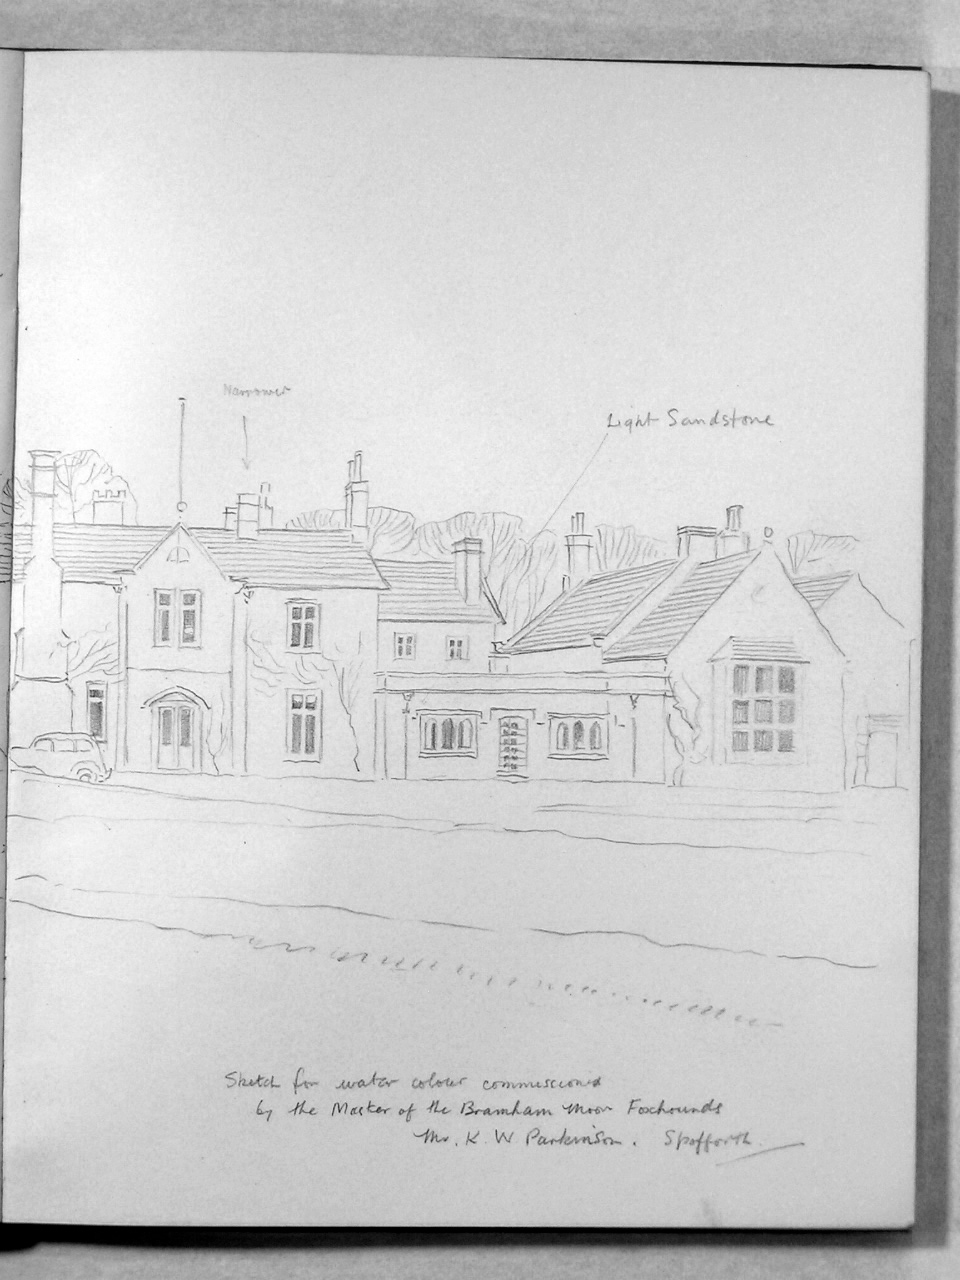 Narrower
Light Sandstone
Sketch for water colour commissioned
by the Master of the Bramham Moor Foxhounds
Mr. K. W Parkinson. Spofforth